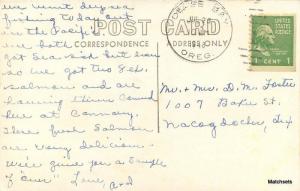 we went deep sea
fishing today out
in the Pacific
we both
got sea sick but
so we got two sea
salmon and are
having them canned
here at Cannery
These fresh Salmon
are very delicious.
We'll give you a sample
of "ours" Love,
POST CARD
CORRESPONDENCE
ADDRESS ONLY
DEPOE BAY
OREG.
1 CENT 1
Mr. & Mrs. D. M. Foster
1007 Baker St.
Nacogdoches, Tex
Matchsets